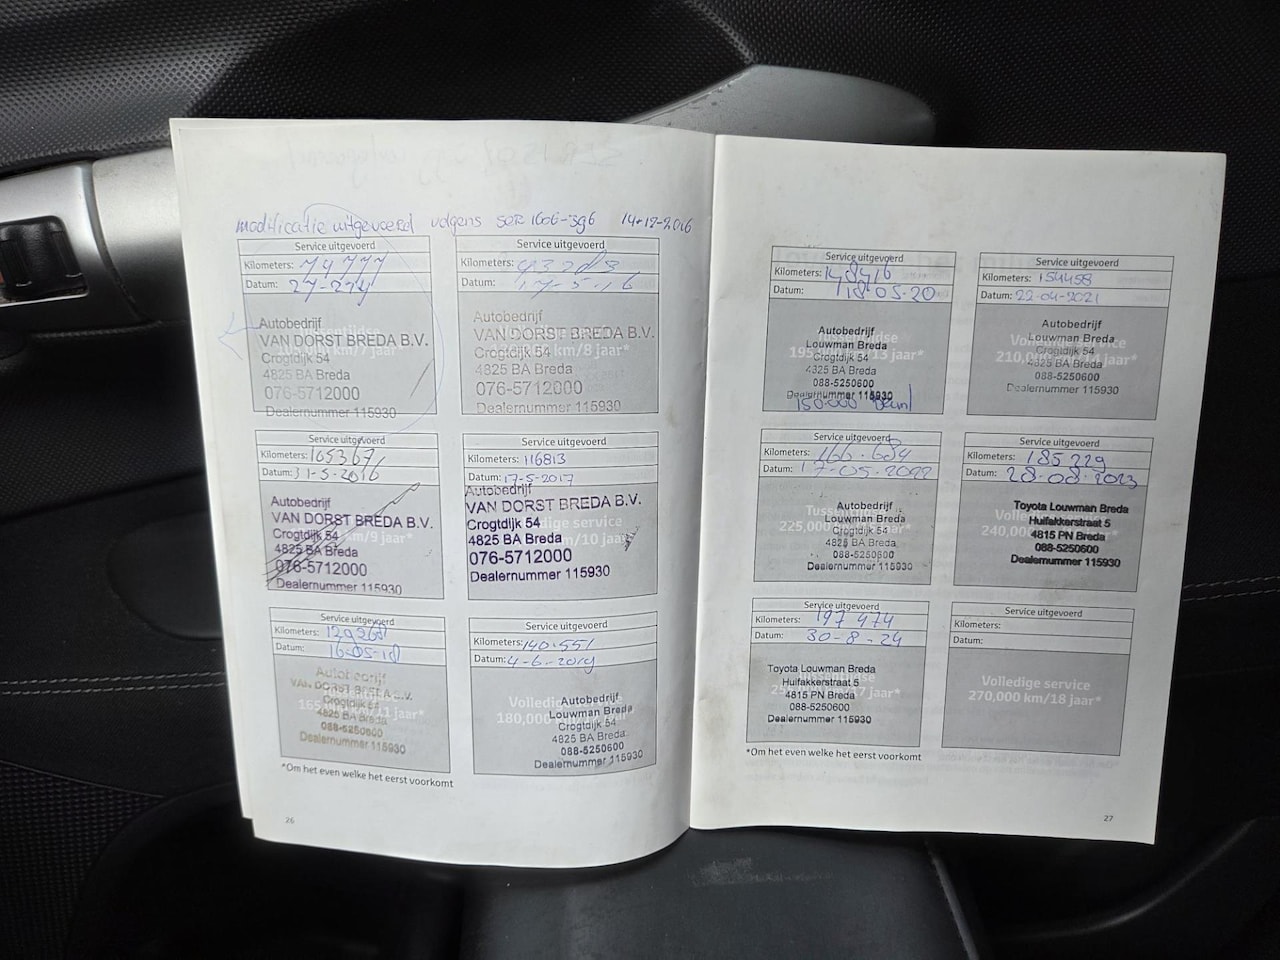 modificatie uitgevoerd volgens 14-12-2016
Service uitgevoerd
Kilometers: 74777
Datum:
Autobedrijf
VAN DORST BREDA B.V.
Crogtdijk 54
4825 BA Breda
076-5712000
Dealernummer 115930
Service uitgevoerd
Kilometers:
Datum:
Autobedrijf
VAN DORST BREDA B.V.
Crogtdijk 54
4825 BA Breda
076-5712000
Dealernummer 115930
Service uitgevoerd
Kilometers: 105367
Datum: 31-5-2016
Autobedrijf
VAN DORST BREDA B.V.
Crogtdijk 54
4825 BA Breda
076-5712000
Dealernummer 115930
Service uitgevoerd
Kilometers: 116813
Datum: 17-5-2017
Autobedrijf
VAN DORST BREDA B.V.
Crogtdijk 54
4825 BA Breda
076-5712000
Dealernummer 115930
Service uitgevoerd
Kilometers:
Datum: 16-05-18
Autobedrijf
VAN DORST BREDA B.V.
Crogtdijk 54
4825 BA Breda
088-5250600
Dealernummer 115930
Service uitgevoerd
Kilometers: 140.551
Datum: 4-6-2019
Volledige service
180,000
Autobedrijf
Louwman Breda
Crogtdijk 54
4825 BA Breda
088-5250600
Dealernummer 115930
*Om het even welke het eerst voorkomt
26
Service uitgevoerd
Kilometers: 148416
Datum: 18-05-20
Autobedrijf
Louwman Breda
Crogtdijk 54
4825 BA Breda
088-5250600
Dealernummer 115930
150.000
Service uitgevoerd
Kilometers: 154458
Datum: 22-04-2021
Autobedrijf
Louwman Breda
Crogtdijk 54
4825 BA Breda
088-5250600
Dealernummer 115930
Service uitgevoerd
Kilometers: 166.684
Datum: 17-05-2022
Autobedrijf
Louwman Breda
Crogtdijk 54
4825 BA Breda
088-5250600
Dealernummer 115930
Service uitgevoerd
Kilometers: 185229
Datum: 28-08-2023
Toyota Louwman Breda
Huifakkerstraat 5
4815 PN Breda
088-5250600
Dealernummer 115930
Service uitgevoerd
Kilometers: 197474
Datum: 30-8-24
Toyota Louwman Breda
Huifakkerstraat 5
4815 PN Breda
088-5250600
Dealernummer 115930
Service uitgevoerd
Kilometers:
Datum:
Volledige service
270,000 km/18 jaar*
*Om het even welke het eerst voorkomt
27